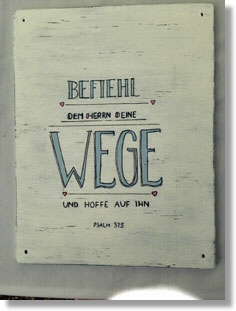 BEFIEHL
DEM HERRN DEINE
WEGE
UND HOFFE AUF IHN
PSALM 37,5